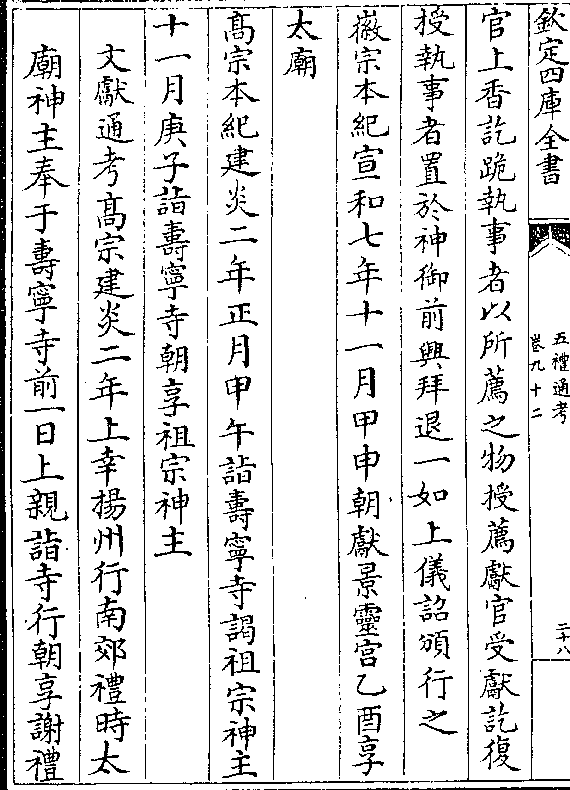 欽定四庫全書
五禮通考
卷九十二
二十八
官上香訖跪執事者以所薦之物授薦獻官受獻訖復
授執事者置於神御前興拜退一如上儀詔頒行之
徽宗本紀宣和七年十一月甲申朝獻景靈宫乙酉享
太廟
髙宗本紀建炎二年正月甲午詣壽寧寺謁祖宗神主
十一月庚子詣壽寧寺朝享祖宗神主
文獻通考髙宗建炎二年上幸揚州行南郊禮時太
廟神主奉于壽寧寺前一日上親詣寺行朝享謝禮